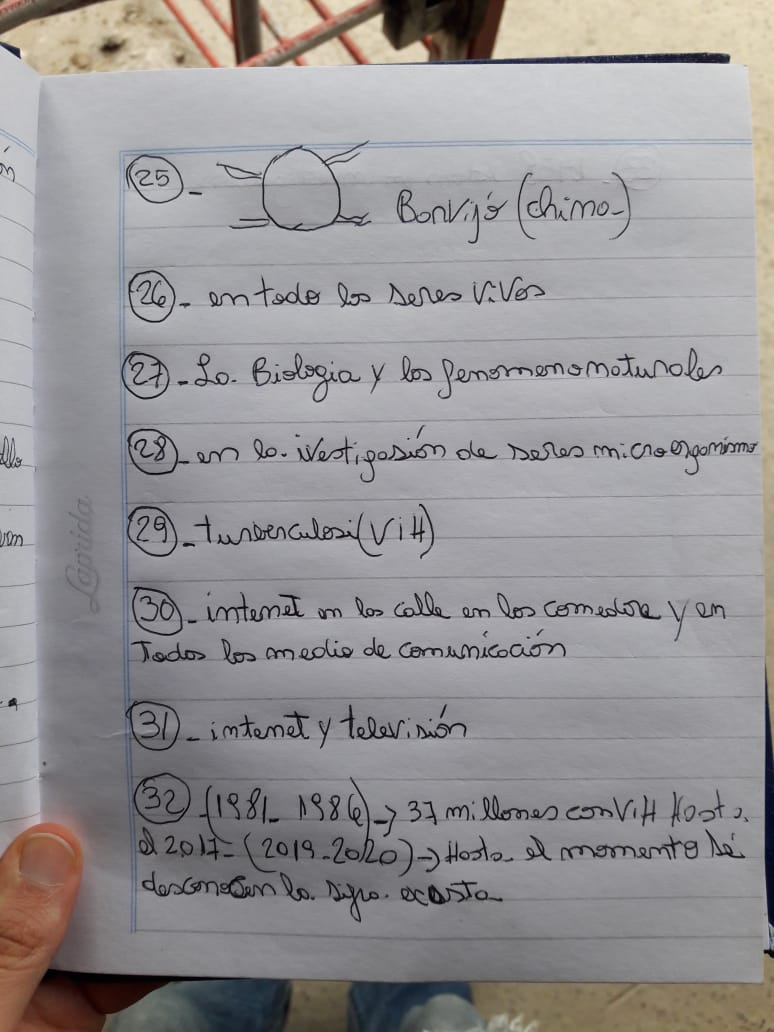 ón
llo
ven
Laprida
25- Bonvijó (chino-)
26- en todo los seres vivos
27- La Biologia y los fenomeno naturales
28- en la ivestigasión de seres microorganismo
29- tunberculosi (ViH)
30- internet en las calle en los comedore y en
Todos los medio de comunicación
31- internet y televisión
32 - (1981- 1986) -> 37 millones con ViH Hasta
el 2017- (2019-2020) -> Hasta el momento sé
desconosen la sifra ecasta